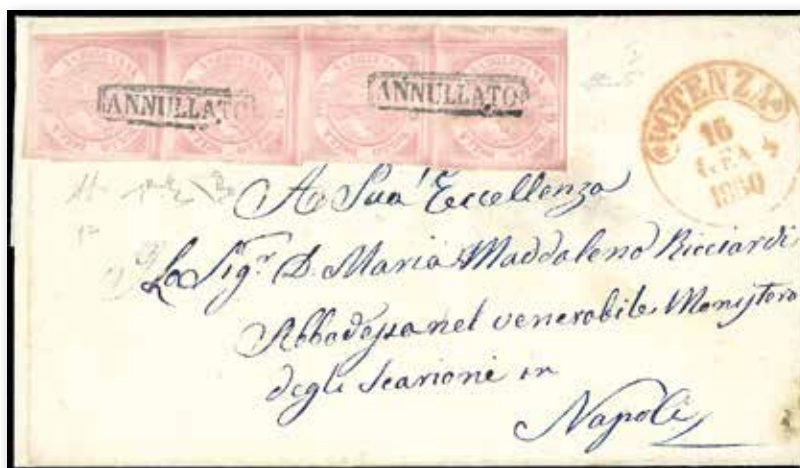 ANNULLATO ANNULLATO
POTENZA
16
GEN
1860
A Sua Eccellenza
La Sigr. D. Maria Maddalena Ricciardi
Abbadessa nel venerabile Monistero
degli Scarione in
Napoli